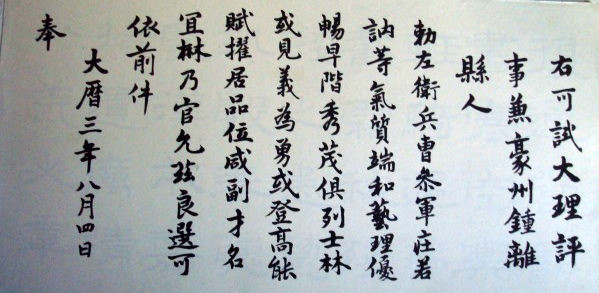 右可試大理評
事兼豪州鍾離
縣人
勅左衛兵曹叅軍莊若
訥等氣質端和藝理優
暢早階秀茂俱列士林
或見義為勇或登高能
賦擢居品位咸副才名
宜楙乃官允茲良選可
依前件
大曆三年八月四日
奉